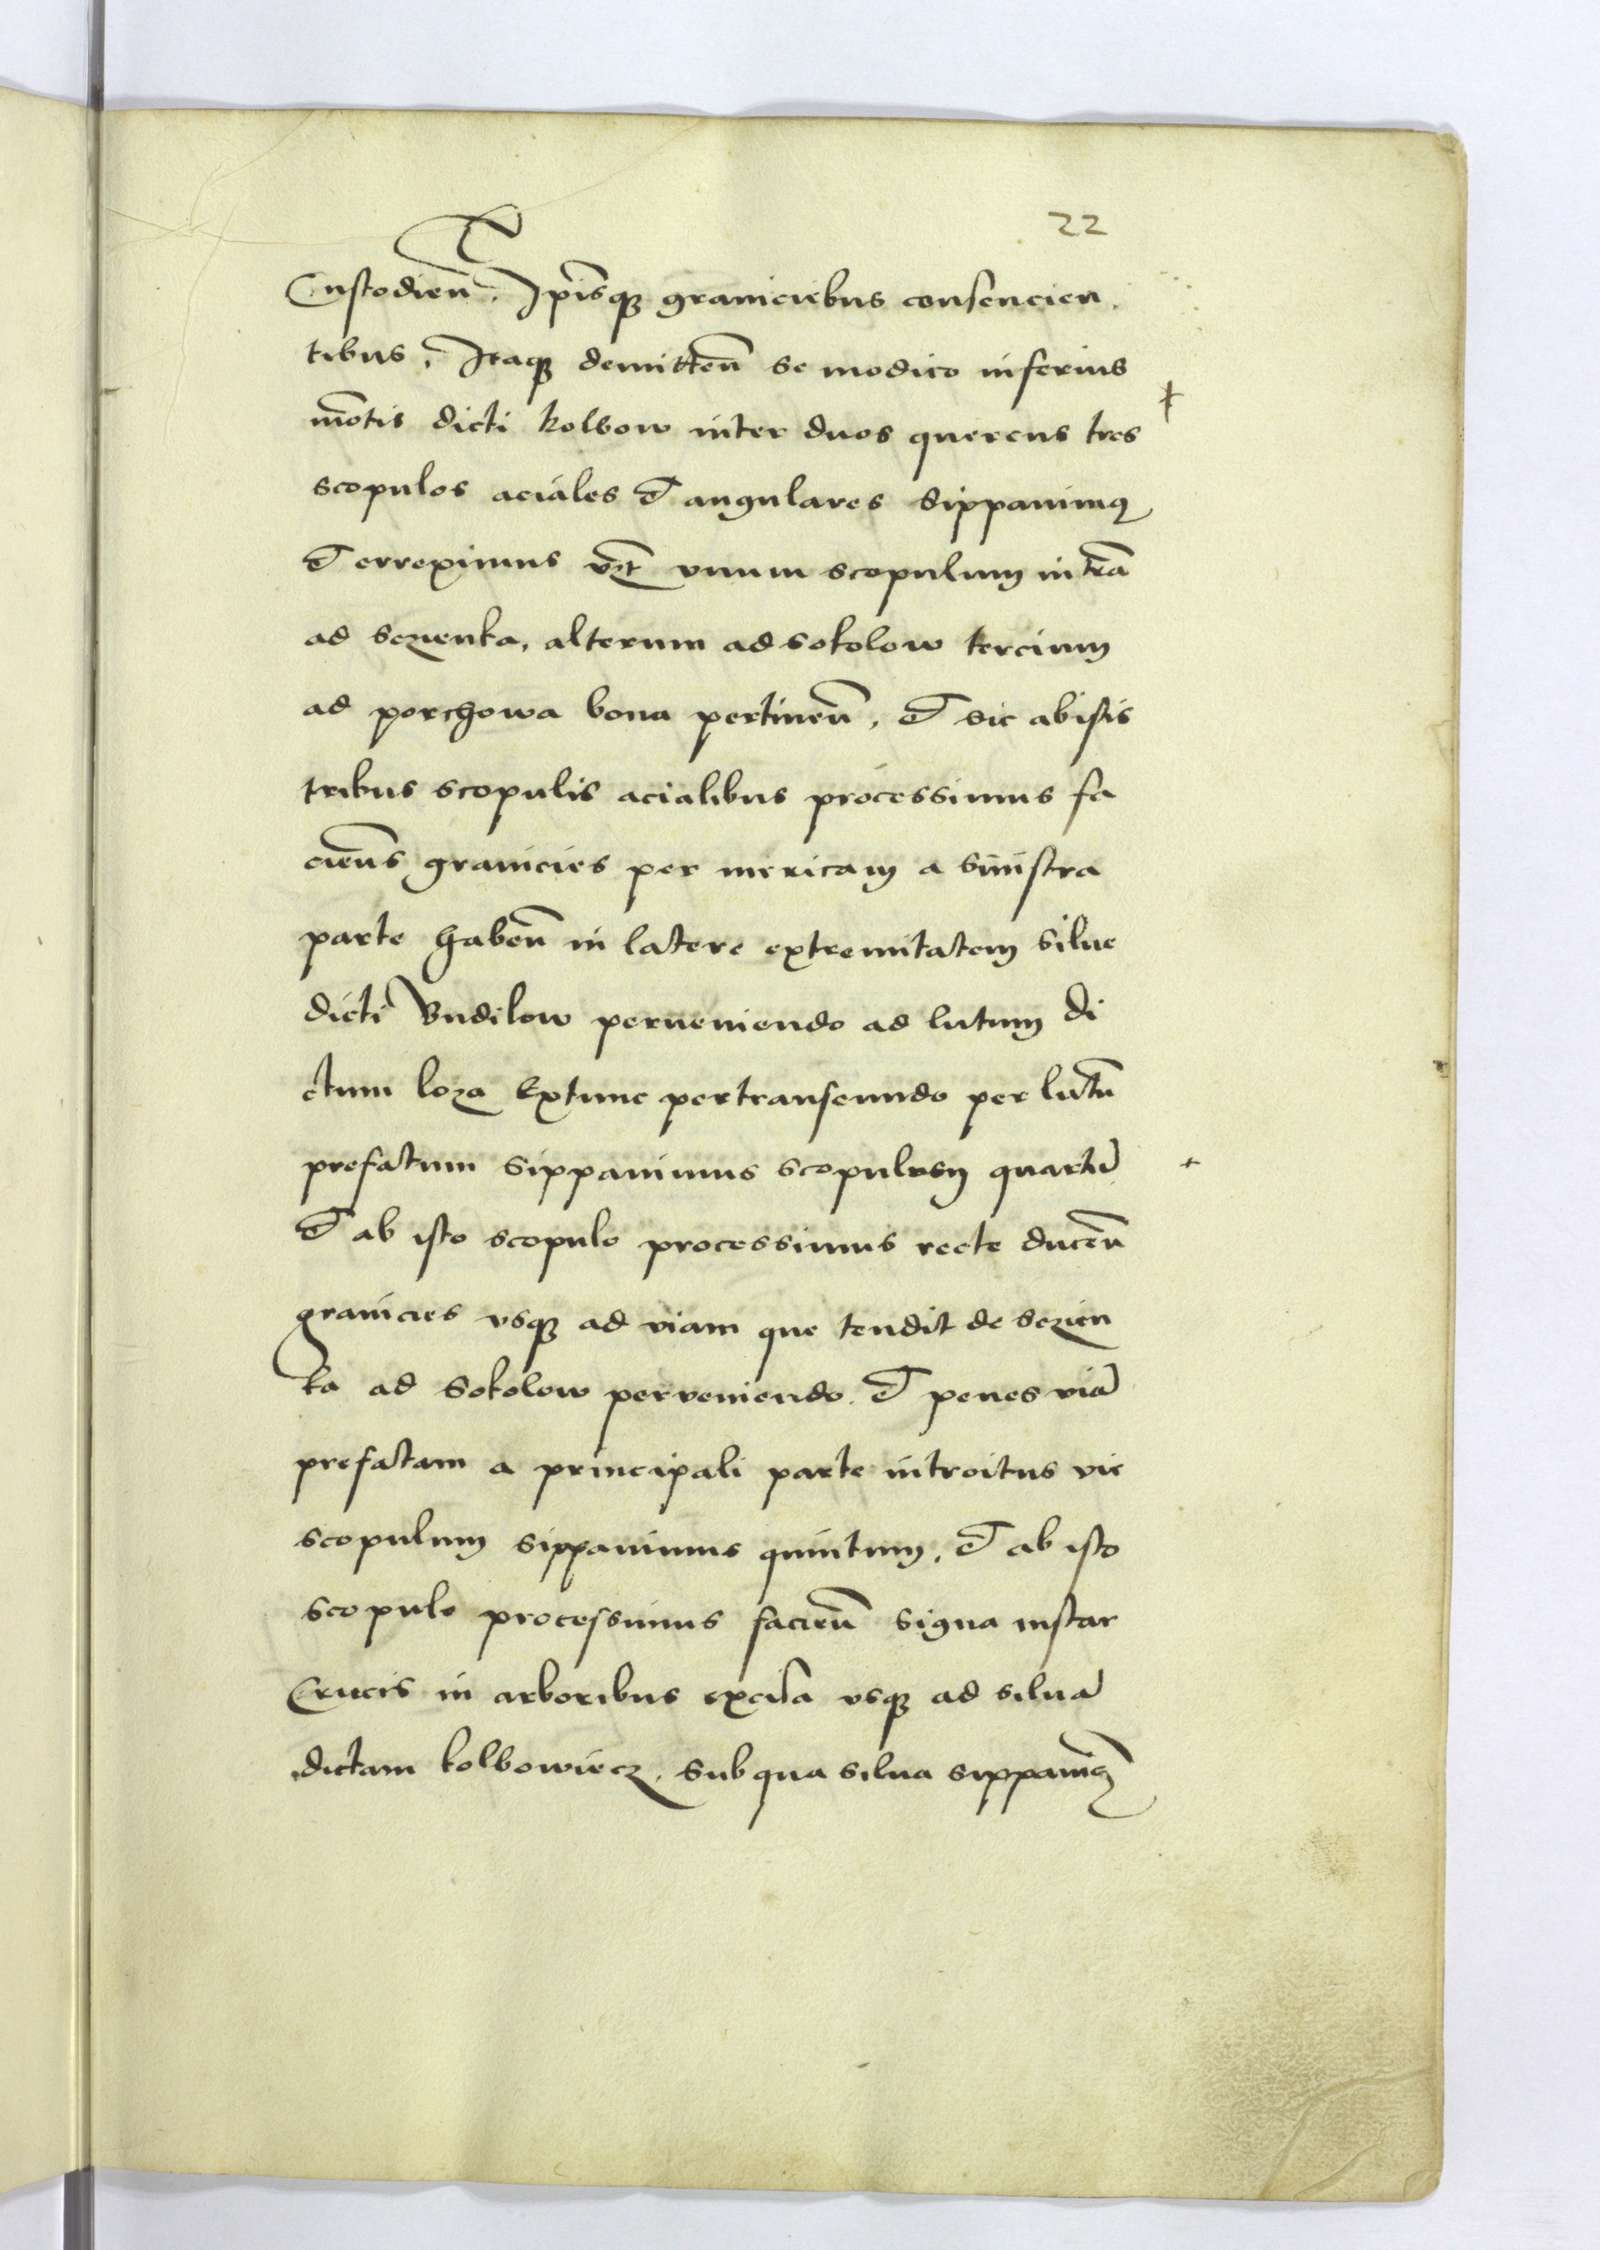 22
Custodien̄. Ip̄isqꝫ graniciebus consencien
tibus. Itaqꝫ demitten̄ se modico inferius
mōtis dicti kolbow inter duos quercus tres
scopulos aciales et angulares sippauimꝰ
et erreximus vꝫt vnum scopulum in terā
ad sczenka, alterum ad sokolow tercium
ad porchowa bona pertinen̄, et sic ab istis
tribus scopulis acialibus processimus fa
ciens̄ granicies per mericam a sinistra
parte haben̄ in latere extremitatem silue
dicti Budilow perueniendo ad lutum di
ctum loza Extunc pertranseundo per lutū
prefatum sippauimus scopulum quartū
et ab isto scopulo processimus recte ducen̄
granicies vsqꝫ ad viam que tendit de sczien
ka ad sokolow perveniendo. et penes viā
prefatam a principali parte introitus vie
scopulum sippauimus quintum, et ab isto
scopulo processimus facien̄ signa instar
Crucis in arboribus excisa vsqꝫ ad siluā
dictam kolbowiecz, sub qua silua sippauimꝰ